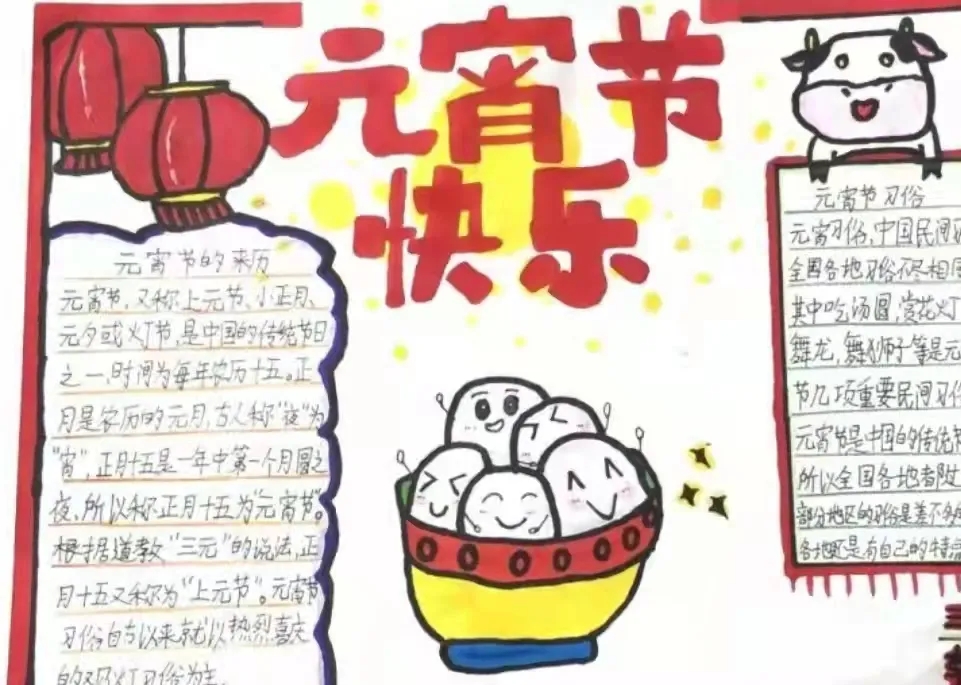 元宵节
快乐
元宵节的来历
元宵节,又称上元节、小正月、
元夕或灯节,是中国的传统节日
之一,时间为每年农历十五。正
月是农历的元月,古人称"夜"为
"宵",正月十五是一年中第一个月圆之
夜,所以称正月十五为"元宵节"。
根据道教"三元"的说法,正
月十五又称为"上元节"。元宵节
习俗自古以来就以热烈喜庆
的观灯习俗为主。
元宵节习俗
元宵习俗,中国民间
全国各地习俗不尽相同
其中吃汤圆,赏花灯
舞龙,舞狮子等是元
节几项重要民间习俗
元宵节是中国的传统节
所以全国各地都
部分地区的习俗是差不多的
各地还是有自己的特